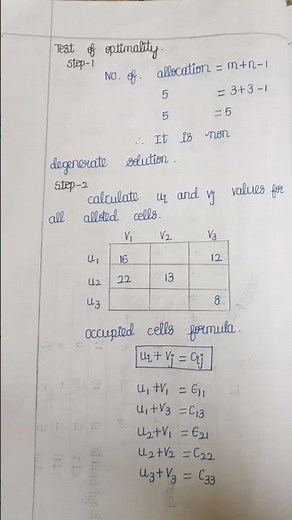 Test of optimality.
Step-1
No. of. allocation = m+n-1
5 = 3+3-1
5 = 5
∴ It is non
degenerate solution.
Step-2
calculate ui and vj values for
all alloted cells.
V1 V2 V3
u1 16 12
u2 22 13
u3 8
occupied cells formula.
ui + vj = cij
u1 + v1 = c11
u1 + v3 = c13
u2 + v1 = c21
u2 + v2 = c22
u3 + v3 = c33